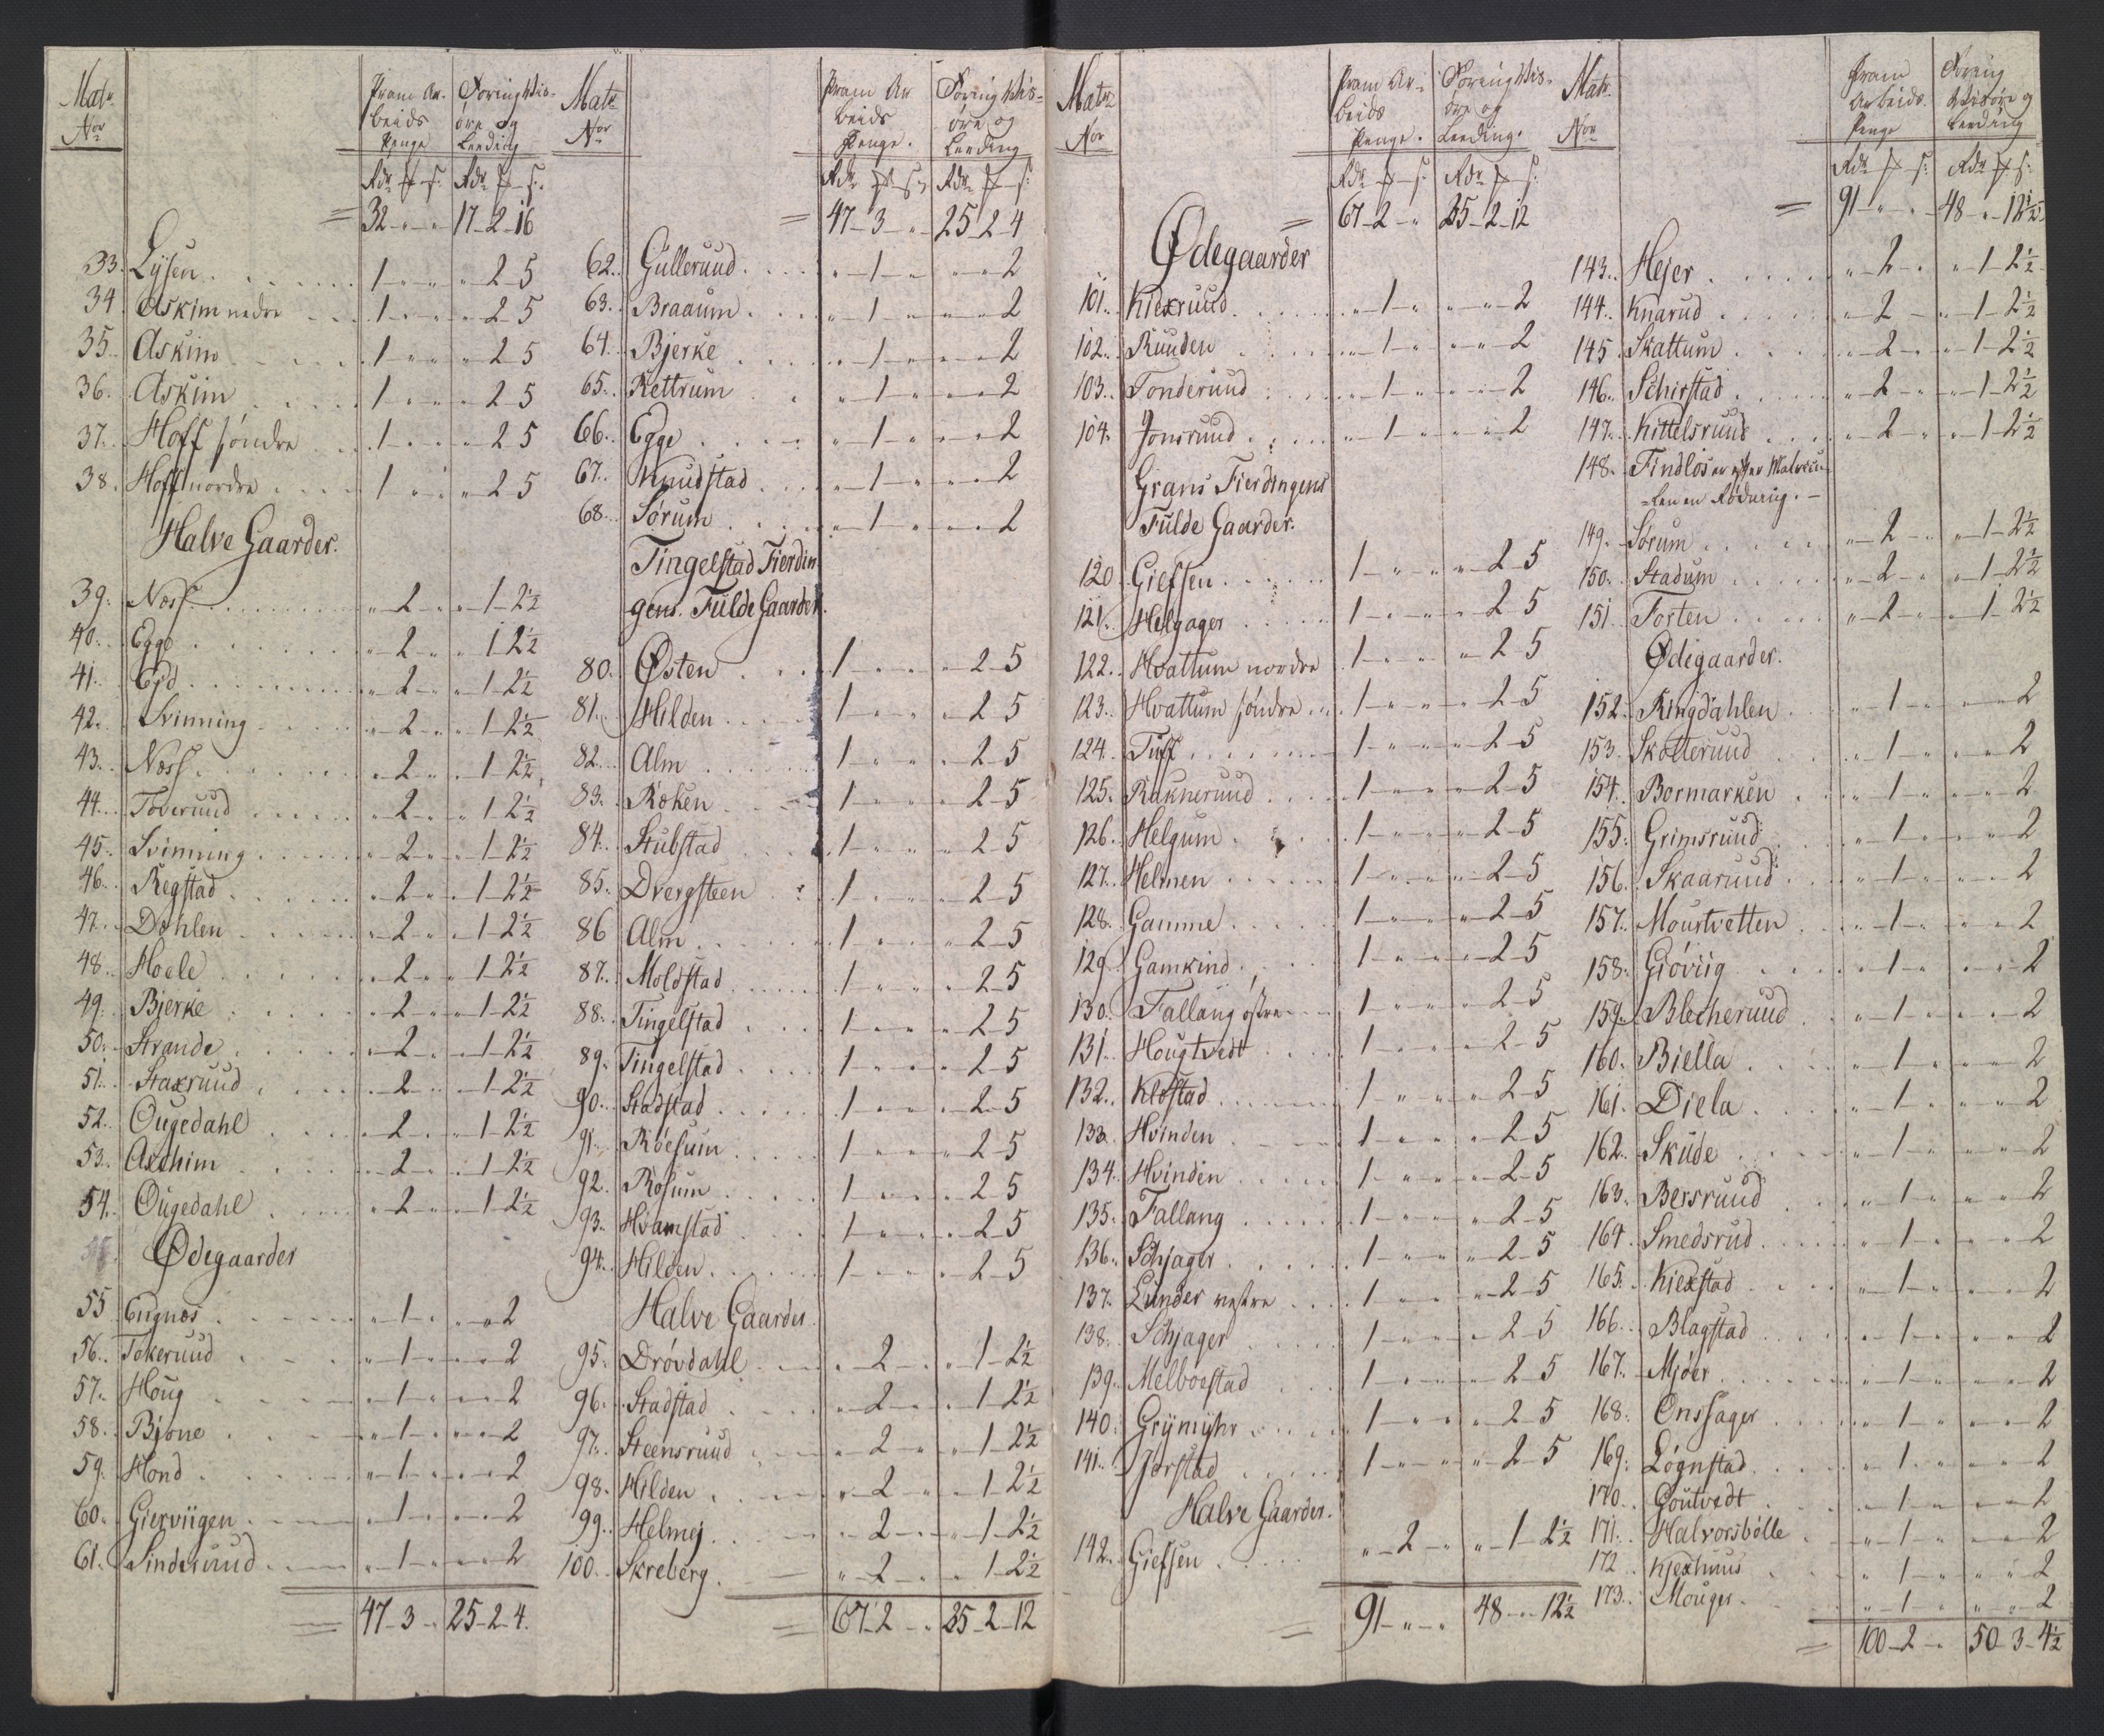 Matr
Nor
Pram Ar-
beids
Penge
Foring Vis-
øre og
Leeding
Rdr f s: Rdr f s:
= 32 - " - " 17 - 2 - 16
33. Lysen. 1 " " " 2 5
34 Askim nedre 1 " " " 2 5
35. Askim 1 " " " 2 5
36. Askim 1 " " " 2 5
37. Hoff søndre 1 " " " 2 5
38. Hoff nordre 1 " " " 2 5
Halve Gaarder.
39. Næss " 2 " " 1 2½
40. Egge " 2 " " 1 2½
41. Eid " 2 " " 1 2½
42. Svinning " 2 " " 1 2½
43. Næss " 2 " " 1 2½
44. Toveruud " 2 " " 1 2½
45. Svinning " 2 " " 1 2½
46. Regstad " 2 " " 1 2½
47. Dæhlen " 2 " " 1 2½
48. Hoele " 2 " " 1 2½
49. Bjerke " 2 " " 1 2½
50. Strande " 2 " " 1 2½
51. Staxruud " 2 " " 1 2½
52. Ougedahl " 2 " " 1 2½
53. Axchim " 2 " " 1 2½
54. Ougedahl " 2 " " 1 2½
Ødegaarder
55 Eugnæs " 1 " " " 2
56. Tokeruud " 1 " " " 2
57. Houg " 1 " " " 2
58. Bjone " 1 " " " 2
59. Hond " 1 " " " 2
60. Gierviigen " 1 " " " 2
61. Sinderuud " 1 " " " 2
= 47 - 3 - " 25 - 2 - 4.
Matr
Nor
Pram Ar
beids
Penge.
Foring Vis=
øre og
Leeding
Rdr f s: Rdr f s:
= 47 - 3 " 25 - 2 4
62. Gulleruud " 1 " " " 2
63. Braaum " 1 " " " 2
64. Bjerke " 1 " " " 2
65. Kettrum " 1 " " " 2
66. Egge " 1 " " " 2
67. Knudstad " 1 " " " 2
68. Sørum " 1 " " " 2
Tingelstad Fierdin
gens. Fulde Gaarder.
80. Østen 1 " " " 2 5
81. Hilden 1 " " " 2 5
82. Alm 1 " " " 2 5
83. Røken 1 " " " 2 5
84. Stubstad 1 " " " 2 5
85. Dvergsteen 1 " " " 2 5
86 Alm 1 " " " 2 5
87. Moldstad 1 " " " 2 5
88. Tingelstad 1 " " " 2 5
89. Tingelstad 1 " " " 2 5
90. Stadstad 1 " " " 2 5
91. Røesum 1 " " " 2 5
92. Rosum 1 " " " 2 5
93. Hvamstad 1 " " " 2 5
94. Hilden 1 " " " 2 5
Halve Gaarder.
95. Drøvdahl " 2 " " 1 2½
96. Stadstad " 2 " " 1 2½
97. Steensruud " 2 " " 1 2½
98. Hilden " 2 " " 1 2½
99. Helmej " 2 " " 1 2½
100. Skreberg " 2 " " 1 2½
= 67 - 2 " 35 - 2 - 12
Matr
Nor
Pram Ar-
beids
Penge.
Foring Vis-
øre og
Leeding.
Rdr f s: Rdr f s:
= 67 - 2 " 35 - 2 - 12
Ødegaarder
101. Kiexruud " 1 " " " 2
102. Ruuden " 1 " " " 2
103. Tonderuud " 1 " " " 2
104. Jonsruud " 1 " " " 2
Grans Fierdingens
Fulde Gaarder.
120 Giefsen 1 " " " 2 5
121. Helgager 1 " " " 2 5
122. Hvattum nordre 1 " " " 2 5
123. Hvattum søndre 1 " " " 2 5
124. Tuff 1 " " " 2 5
125. Rakneruud 1 " " " 2 5
126. Helgum 1 " " " 2 5
127. Helmen 1 " " " 2 5
128. Gamme 1 " " " 2 5
129. Gamkind 1 " " " 2 5
130. Fallang østre 1 " " " 2 5
131. Hougtvedt 1 " " " 2 5
132. Kløstad 1 " " " 2 5
133. Hvinden 1 " " " 2 5
134. Hvinden 1 " " " 2 5
135. Fallang 1 " " " 2 5
136. Schjager 1 " " " 2 5
137. Lunder vestre 1 " " " 2 5
138. Schjager 1 " " " 2 5
139. Melboestad 1 " " " 2 5
140. Grymyhr 1 " " " 2 5
141. Jorstad 1 " " " 2 5
Halve Gaarder.
142. Giefsen " 2 " " 1 2½
= 91 - " - " 48 - " - 12½
Matr.
Nor
Pram
Arbeids.
Penge
Foring
Visøre og
Leeding
Rdr f s: Rdr f s:
= 91 - " - " 48 " 12½
143. Hejer " 2 " " 1 2½
144. Knarud " 2 " " 1 2½
145. Skattum " 2 " " 1 2½
146. Schirstad " 2 " " 1 2½
147. Kittelsruud " 2 " " 1 2½
148. Findløs er efter Matricu-
len en Røderig.
149. Sørum " 2 " " 1 2½
150. Stadum " 2 " " 1 2½
151. Torten " 2 " " 1 2½
Ødegaarder.
152. Ringdahlen " 1 " " " 2
153. Skotteruud " 1 " " " 2
154. Bormarken " 1 " " " 2
155. Grimsruud " 1 " " " 2
156. Skaaruud " 1 " " " 2
157. Moustvetten " 1 " " " 2
158. Giøviig " 1 " " " 2
159. Blecheruud " 1 " " " 2
160. Biella " 1 " " " 2
161. Diela " 1 " " " 2
162. Skude " 1 " " " 2
163. Bersruud " 1 " " " 2
164. Smedsrud " 1 " " " 2
165. Kiexstad " 1 " " " 2
166. Blagstad " 1 " " " 2
167. Mjøer " 1 " " " 2
168. Onssager " 1 " " " 2
169. Løgnstad " 1 " " " 2
170. Goutvedt " 1 " " " 2
171. Halvorsbølle " 1 " " " 2
172 Kjexhuus " 1 " " " 2
173. Mouger " 1 " " " 2
= 100 - 2 " 50 - 3 - 4½